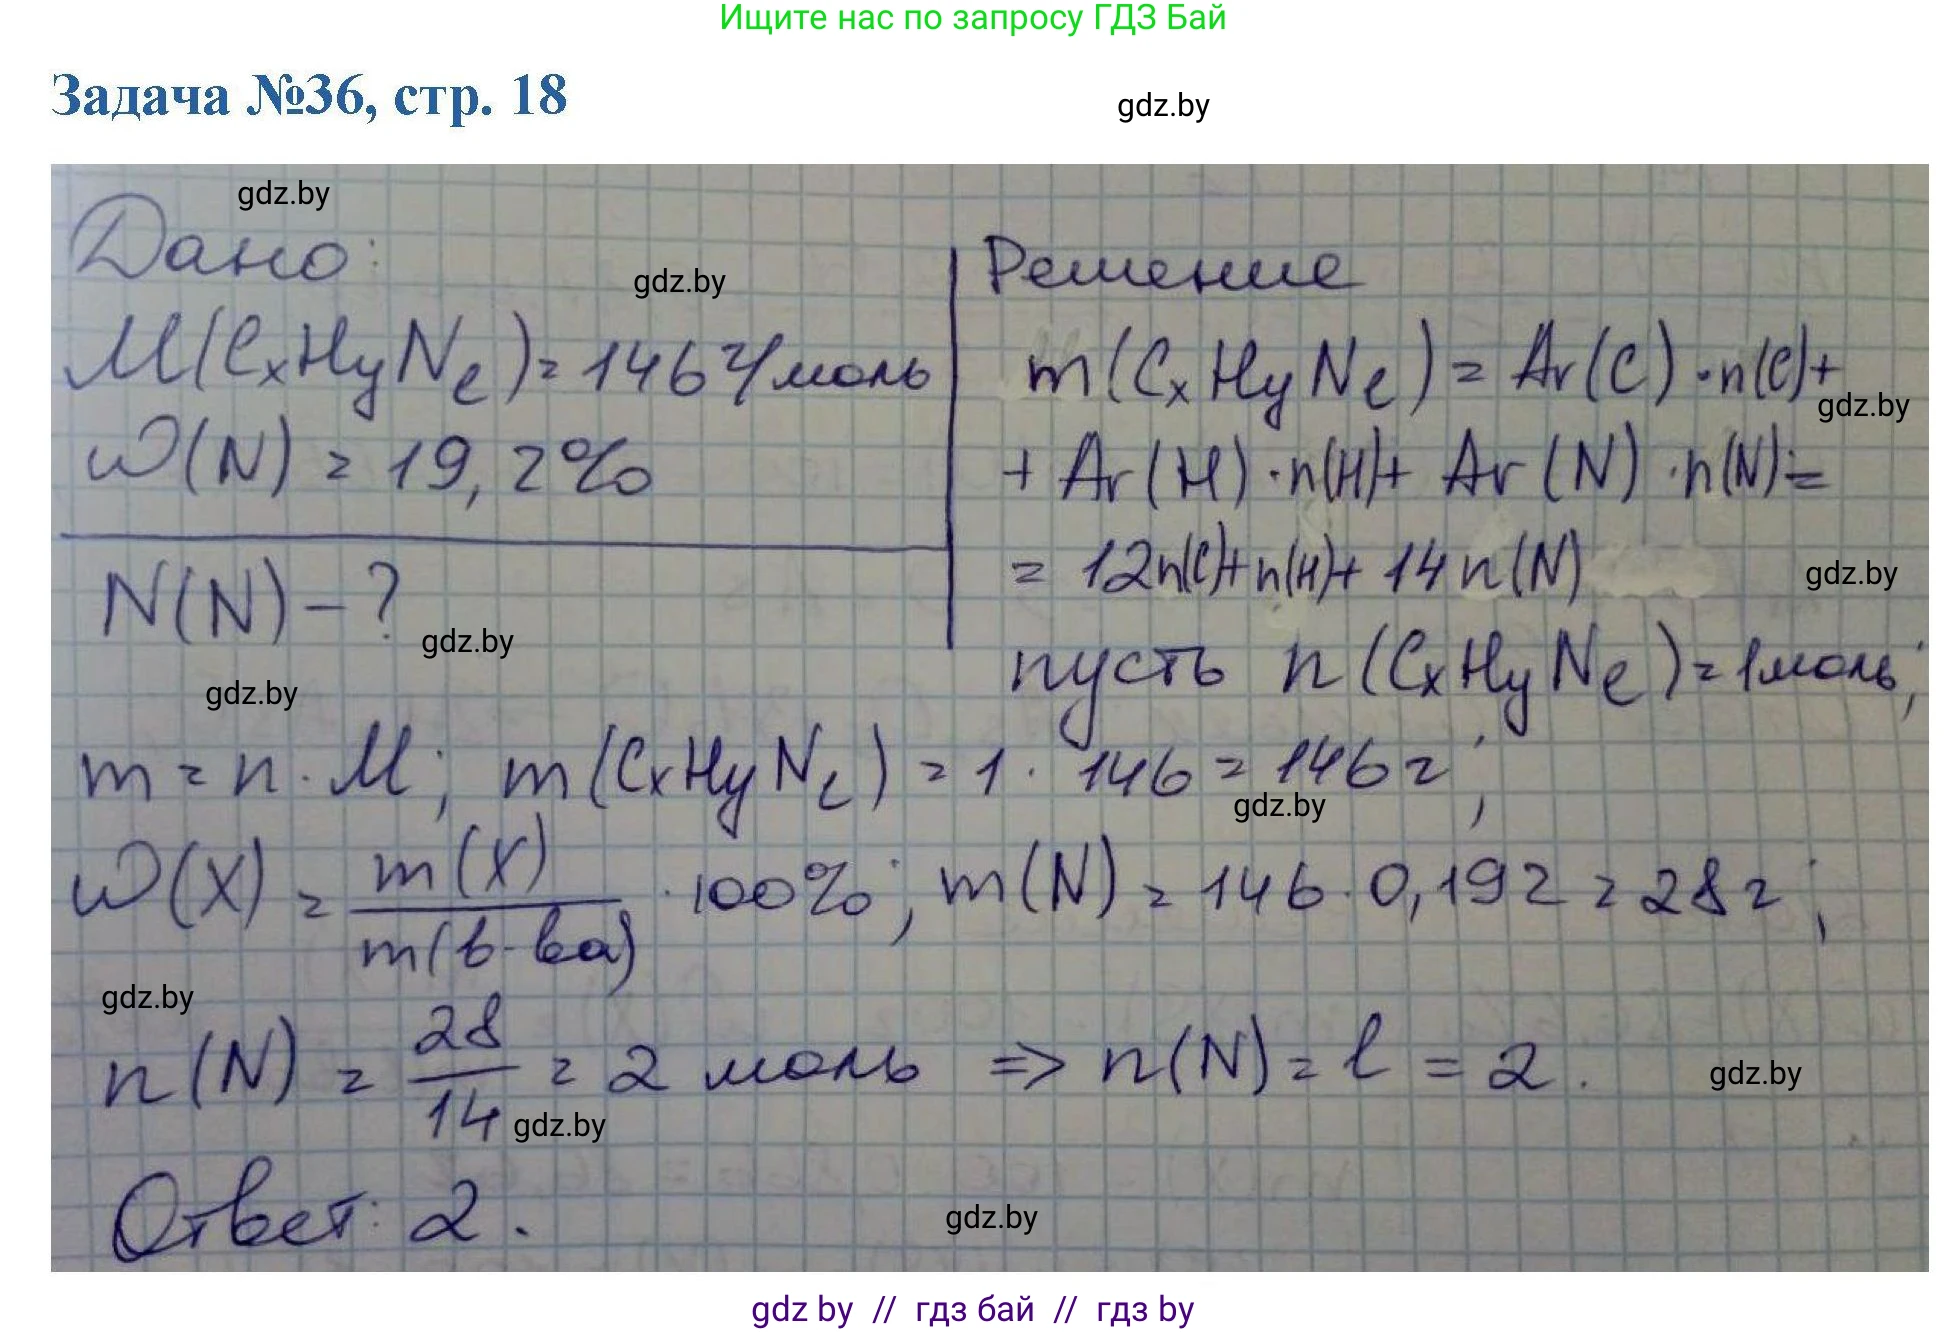 Ищите нас по запросу ГДЗ Бай
Задача №36, стр. 18
gdz.by
gdz.by
Дано:
gdz.by
M(CxHyNe) = 146 г/моль
W(N) = 19,2%
N(N) - ?
gdz.by
gdz.by
Решение
m(CxHyNe) = Ar(C) · n(C)+
gdz.by
+ Ar(H) · n(H)+ Ar(N) · n(N)=
= 12n(C)+n(H)+ 14n(N)
gdz.by
пусть n(CxHyNe) = 1моль;
m = n · M; m(CxHyNe) = 1 · 146 = 146г;
gdz.by
W(X) = m(X) / m(в-ва) · 100%; m(N) = 146 · 0,192 = 28г;
gdz.by
n(N) = 28 / 14 = 2 моль => n(N) = l = 2.
gdz.by
gdz.by
Ответ: 2.
gdz.by
gdz by // гдз бай // гдз by